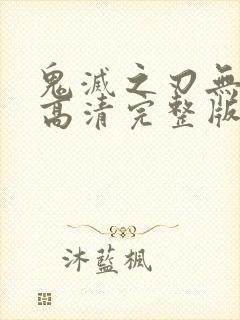 鬼滅之刃無
高清完整版
沐藍楓